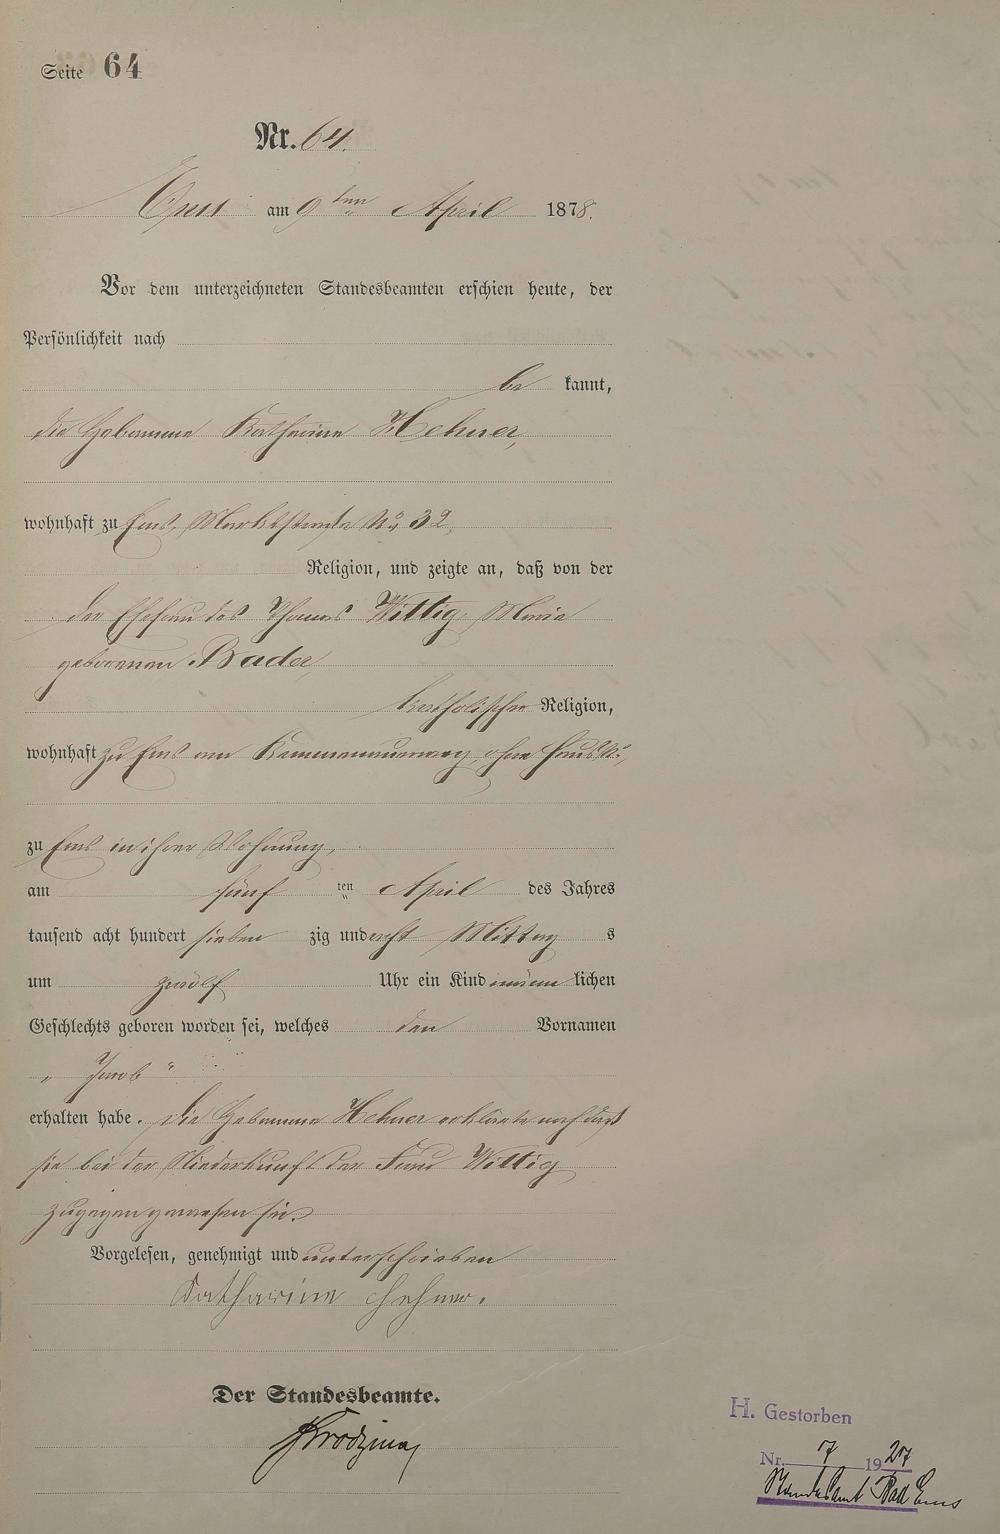 Seite 64
Nr. 64.
Ems am 9ten April 1878.
Vor dem unterzeichneten Standesbeamten erschien heute, der
Persönlichkeit nach
be kannt,
die Hebamme Katharine Hehner,
wohnhaft zu Ems, Marktstraße No 32,
Religion, und zeigte an, daß von der
der Ehefrau des Thomas Wittig, Maria
geborenen Bader,
katholischer Religion,
wohnhaft zu Ems am Kemmenauerweg, ohne Haus No,
zu Ems in ihrer Wohnung,
am fünf ten April des Jahres
tausend acht hundert sieben zig und acht Mittag s
um zwölf Uhr ein Kind männ lichen
Geschlechts geboren worden sei, welches den Vornamen
„ Jacob "
erhalten habe. Die Hebamme Hehner erklärte noch daß
sie bei der Niederkunft der Frau Wittig
zugegen gewesen sei.
Vorgelesen, genehmigt und unterschrieben
Katharine Hehner.
Der Standesbeamte.
H. Gestorben
Nr. 7 1927
Standesamt Bad Ems